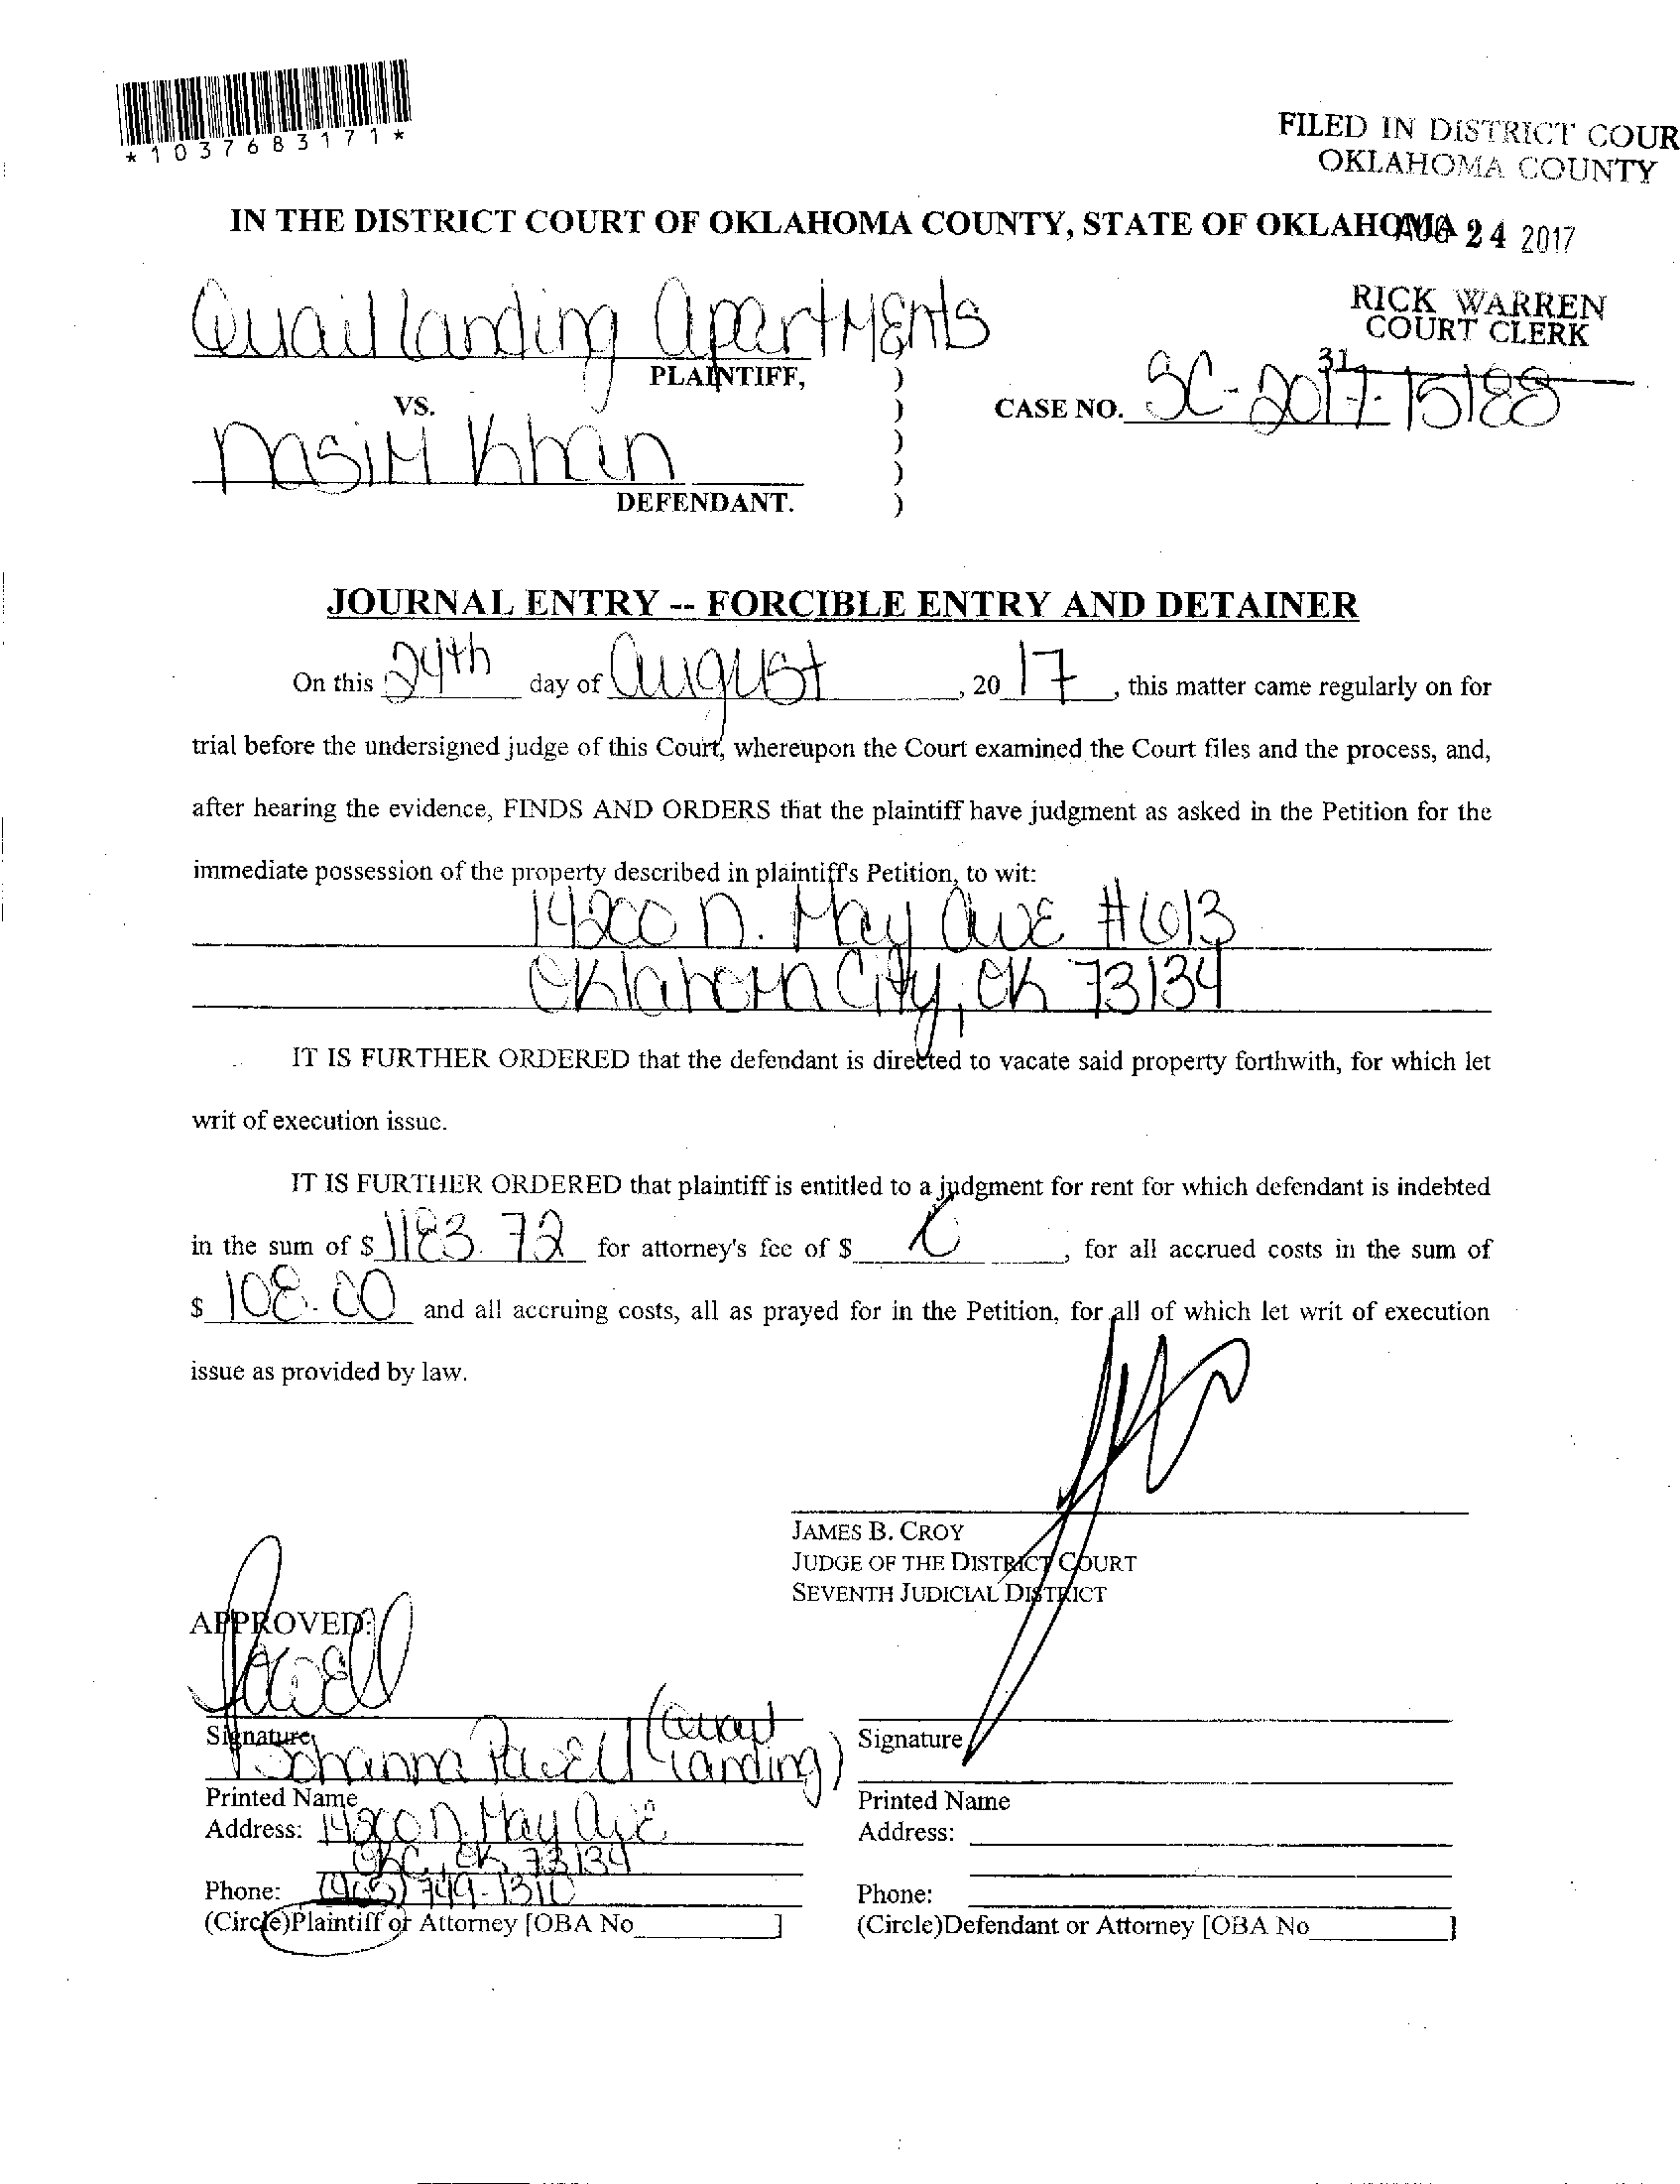 *1037683171*
FILED IN DISTRICT COUR
OKLAHOMA COUNTY
IN THE DISTRICT COURT OF OKLAHOMA COUNTY, STATE OF OKLAHOMA
AUG 24 2017
Quail landing apartments
PLAINTIFF, )
RICK WARREN
COURT CLERK
31
VS. )
CASE NO. SC-2017-15188
)
Nasim Khan )
DEFENDANT. )
JOURNAL ENTRY -- FORCIBLE ENTRY AND DETAINER
On this 24th day of August, 2017, this matter came regularly on for
trial before the undersigned judge of this Court, whereupon the Court examined the Court files and the process, and,
after hearing the evidence, FINDS AND ORDERS that the plaintiff have judgment as asked in the Petition for the
immediate possession of the property described in plaintiff's Petition, to wit:
14200 N. May Ave #613
Oklahoma City, OK 73134
IT IS FURTHER ORDERED that the defendant is directed to vacate said property forthwith, for which let
writ of execution issue.
IT IS FURTHER ORDERED that plaintiff is entitled to a judgment for rent for which defendant is indebted
in the sum of $ 1183.72 for attorney's fee of $ , for all accrued costs in the sum of
$ 108.00 and all accruing costs, all as prayed for in the Petition, for all of which let writ of execution
issue as provided by law.
JAMES B. CROY
JUDGE OF THE DISTRICT COURT
SEVENTH JUDICIAL DISTRICT
APPROVED:
Signature
Johanna Powell (Quail landing)
Printed Name
Address: 14200 N. May Ave
OKC, OK 73134
Phone: (405) 749-1310
(Circle)Plaintiff or Attorney [OBA No ]
Signature
Printed Name
Address:
Phone:
(Circle)Defendant or Attorney [OBA No ]